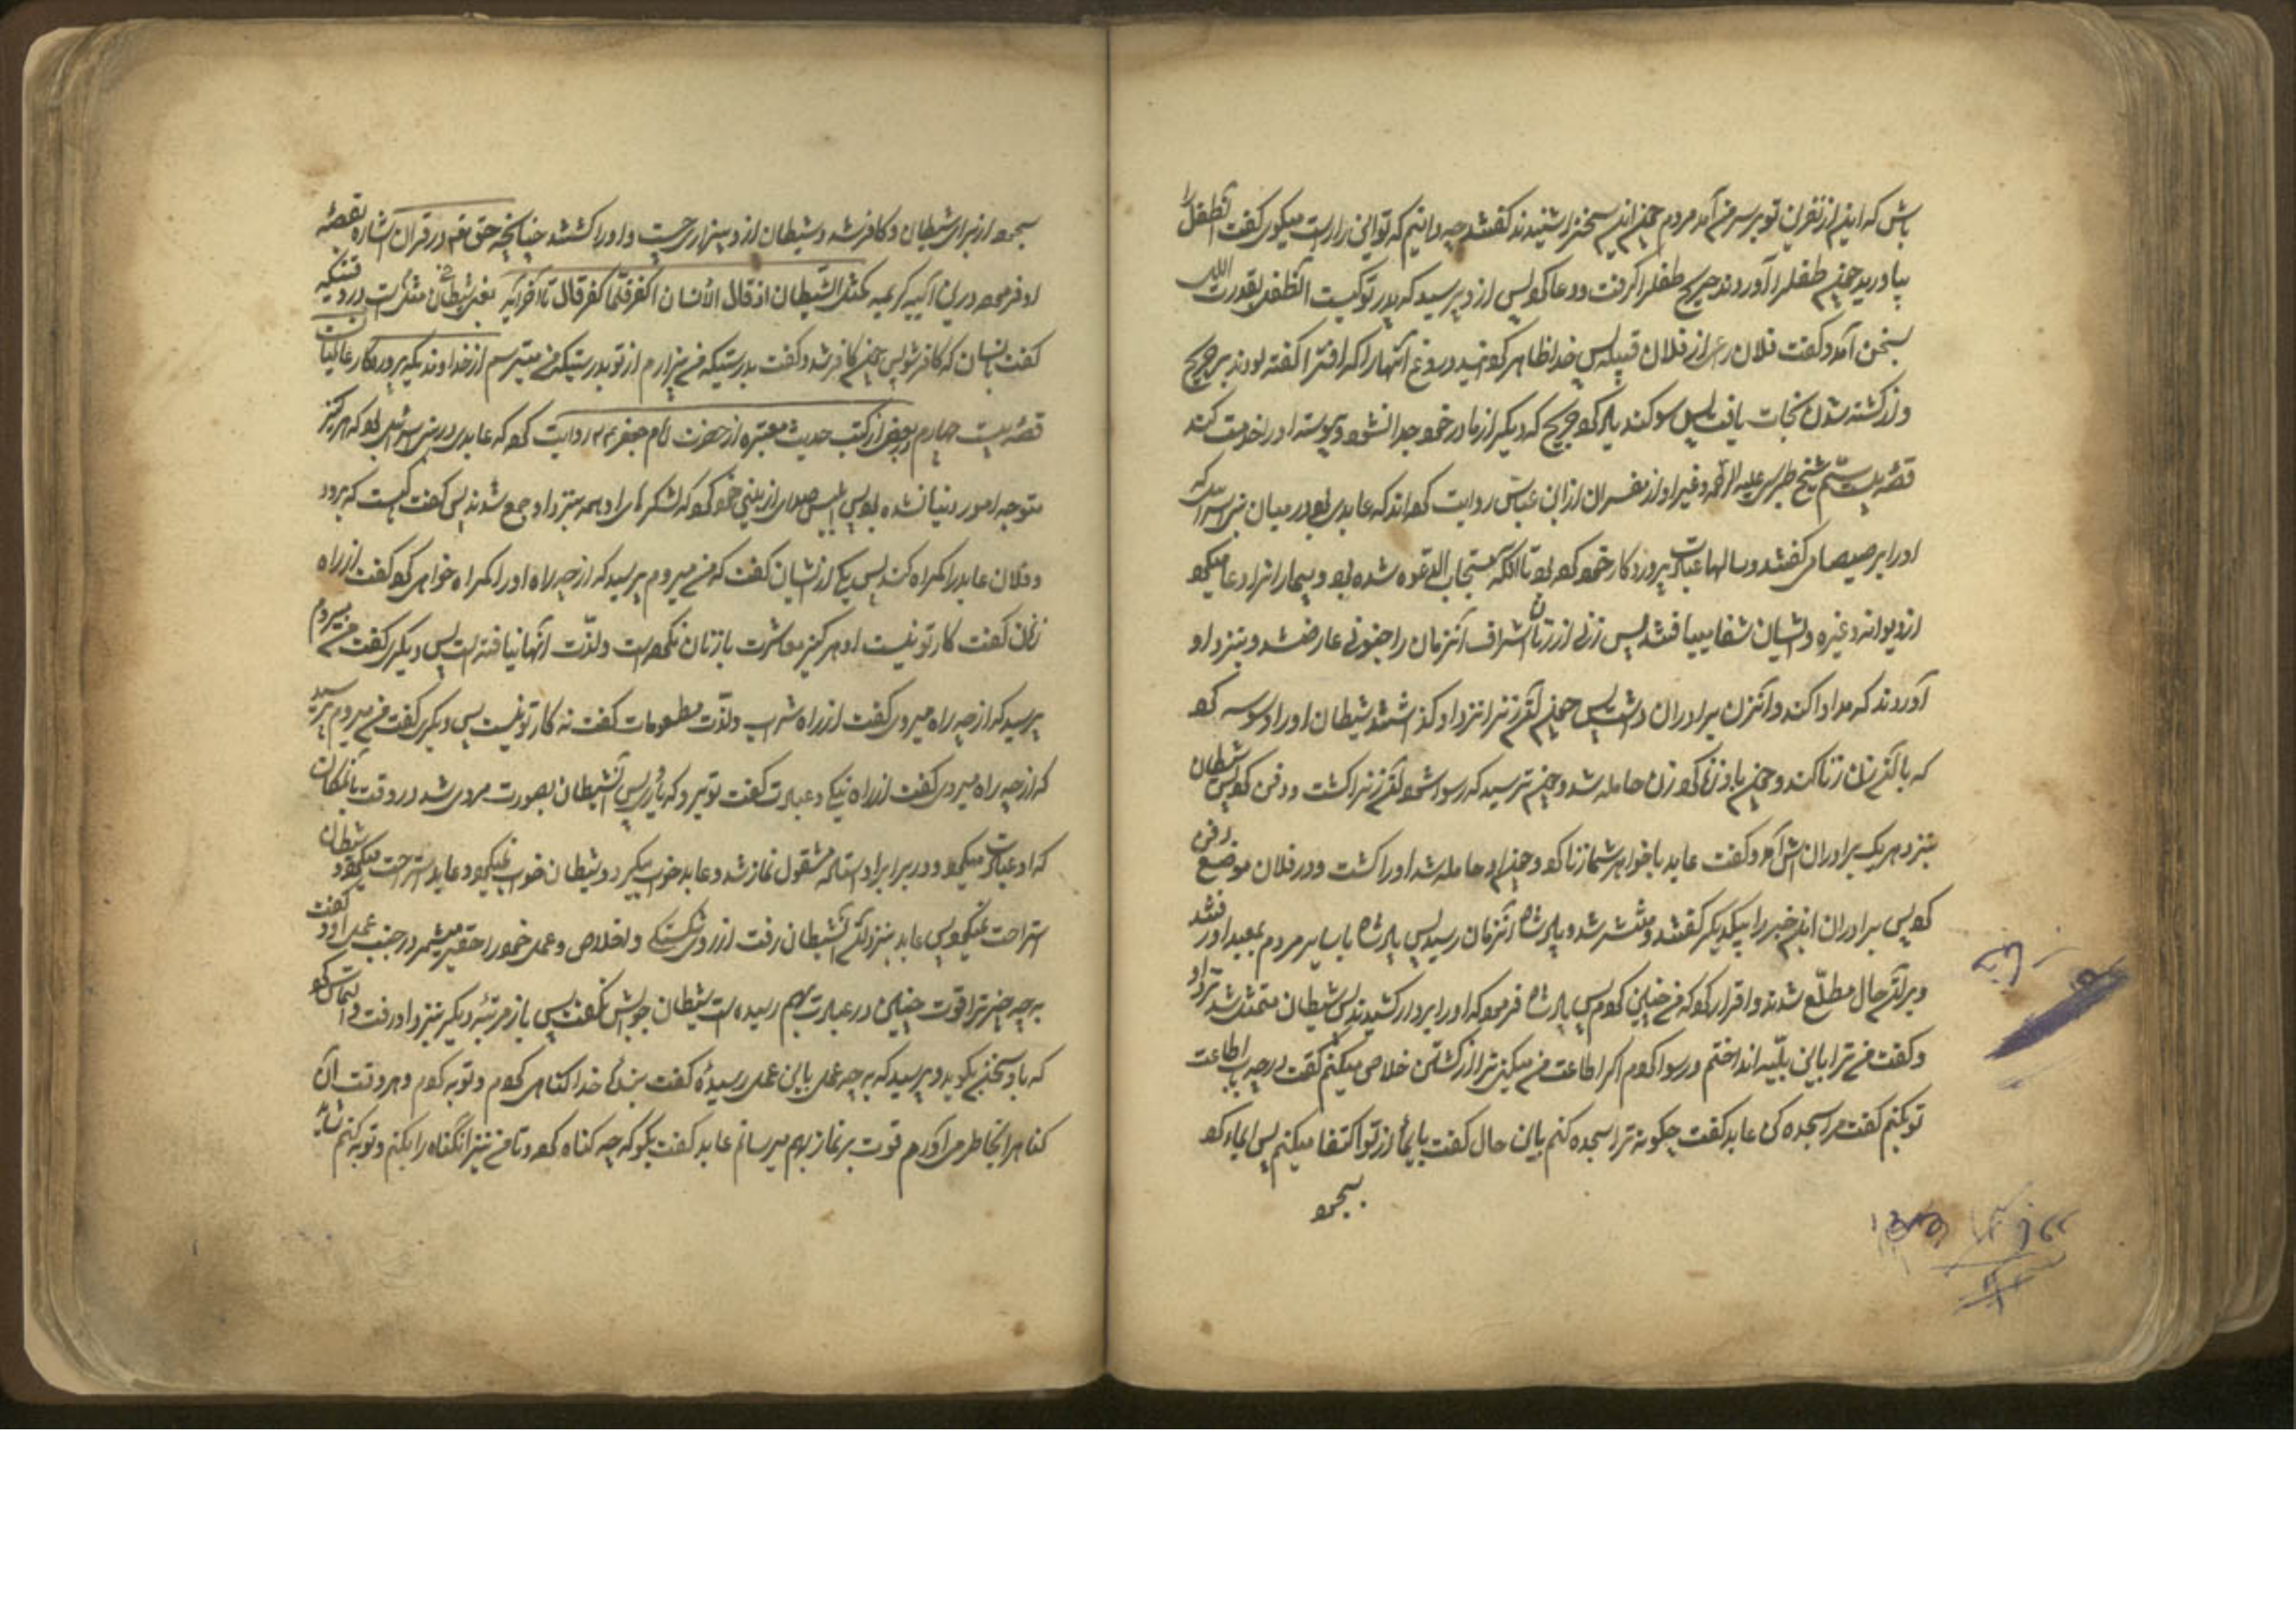 باش که اینم از نفرین تو بر سر من آمد مردم چون این سخن را شنیدند گفتند چه دانیم که تو این را راست میکوی گفت آنطفل را
بیاورید چون طفل را آوردند جریح طفل را گرفت و دعا کرد پس از و پرسید که پدر تو کیست آنطفل بقدرت الله
بسخن آمد و گفت فلان راعی از فلان قبیله پس خدا ظاهر گردانید دروغ آنها را که افترا گفته بودند بر جریح
و از کشته شدن نجات یافت پس سوگند یاد کرد جریح که دیگر از مادر خود جدا نشود و پیوسته او را خدمت کند
قصه بیست سیم شیخ طبرسی علیه الرحمه و غیر او از مفسران از ابن عباس روایت کرده اند که عابدی بود در میان بنی اسرائیل که
او را برصیصا می گفتند و سالها عبادت پروردگار خود کرده بود تا آنکه مستجاب الدعوه شده بود و بیمارانرا دعا میکرد
از دیوانه و غیره و ایشان شفا مییافتند پس زنی از زنان اشراف آنزمان را جنونی عارض شد و بنزد او
آوردند که مداوا کند و آنزن برادران داشت پس چون آنزنرا نزد او گذاشتند شیطان او را وسوسه کرد
که با آنزن زنا کند و چون با او زنا کرد زن حامله شد و چون ترسید که رسوا شود آنزنرا کشت و دفن کرد پس شیطان
بنزد هر یک برادران اش آمد و گفت عابد با خواهر شما زنا کرد و چون او حامله شد او را کشت و در فلان موضع دفن
کرد پس برادران این خبر را بیکدیگر گفتند و منتشر شد و بپادشاه آنزمان رسید پس پادشاه با سایر مردم بمعبد او رفتند
و بر آن حال مطلع شدند و اقرار کرد که من چنین کردم پس پادشاه فرمود که او را بردار کشیدند پس شیطان متمثل شد نزد او
و گفت من ترا باین بلیه انداختم و رسوا کردم اگر اطاعت من میکنی ترا از کشتن خلاص میکنم گفت در چه باب اطاعت
تو بکنم گفت مرا سجده کن عابد گفت چگونه ترا سجده کنم باین حال گفت بایما از تو اکتفا میکنم پس ایما کرد
بسجود
سجود از برای شیطان و کافر شد و شیطان از و بیزاری جست و او را کشتند چنانچه حق تعالی در قران اشاره بقصه
او فرموده در این آیه کریمه کمثل الشیطان اذ قال للانسان اکفر فلما کفر قال تا آخر آیه یعنی مثل شیطان در وقتیکه
گفت بانسان که کافر شو پس چون کافر شد گفت بدرستیکه من بیزارم از تو بدرستیکه من میترسم از خداوندیکه پروردگار عالمیان است
قصه بیست چهارم در بعضی از کتب حدیث معتبره از حضرت امام جعفر روایت کرده که عابدی در بنی اسرائیل بود که هرگز
متوجه امور دنیا نشده بود پس ابلیس صدای از بینی خود کرد که لشکرهای او همه بنزد او جمع شدند پس گفت کیست که برود
و فلان عابد را گمراه کند پس یکی از ایشان گفت که من میروم پرسید که از چه راه او را گمراه خواهی کرد گفت از راه
زنان گفت کار تو نیست او هرگز معاشرت با زنان نکرده است و لذت آنها نیافته است پس دیگری گفت من میروم
پرسید که از چه راه میروی گفت از راه شراب و لذت مطعومات گفت نه کار تو نیست پس دیگری گفت من میروم پرسید
که از چه راه میروی گفت از راه نیکی و عبادت گفت تو برو که یاوری پس آنشیطان بصورت مردی شد در وقت بآنمکان
که او عبادت میکرد و در برابر او ایستاد مشغول نماز شد و عابد خواب میکرد و شیطان خواب نمیکرد و عابد استراحت میکرد و شیطان
استراحت نمیکرد پس عابد بنزد آن شیطان رفت از روی شکستگی و اخلاص و عمل خود را حقیر میشمرد در جنب عمل او و گفت
بچه چیز ترا قوت چنین در عبادت بهم رسیده است شیطان جوابش نگفت پس باز مرتبه دیگر بنزد او رفت و التماس کرد
که با او سخن بگوید و پرسید که بر چه عمل باین عمل رسیدهٔ گفت بندهٔ خدا گناهی کردم و توبه کردم و هر وقت آن
گناه را بخاطر می آورم قوت بر نماز بهم میرسانم عابد گفت بگو که چه گناه کرده تا من نیز آنگناه را بکنم و توبه کنم شاید